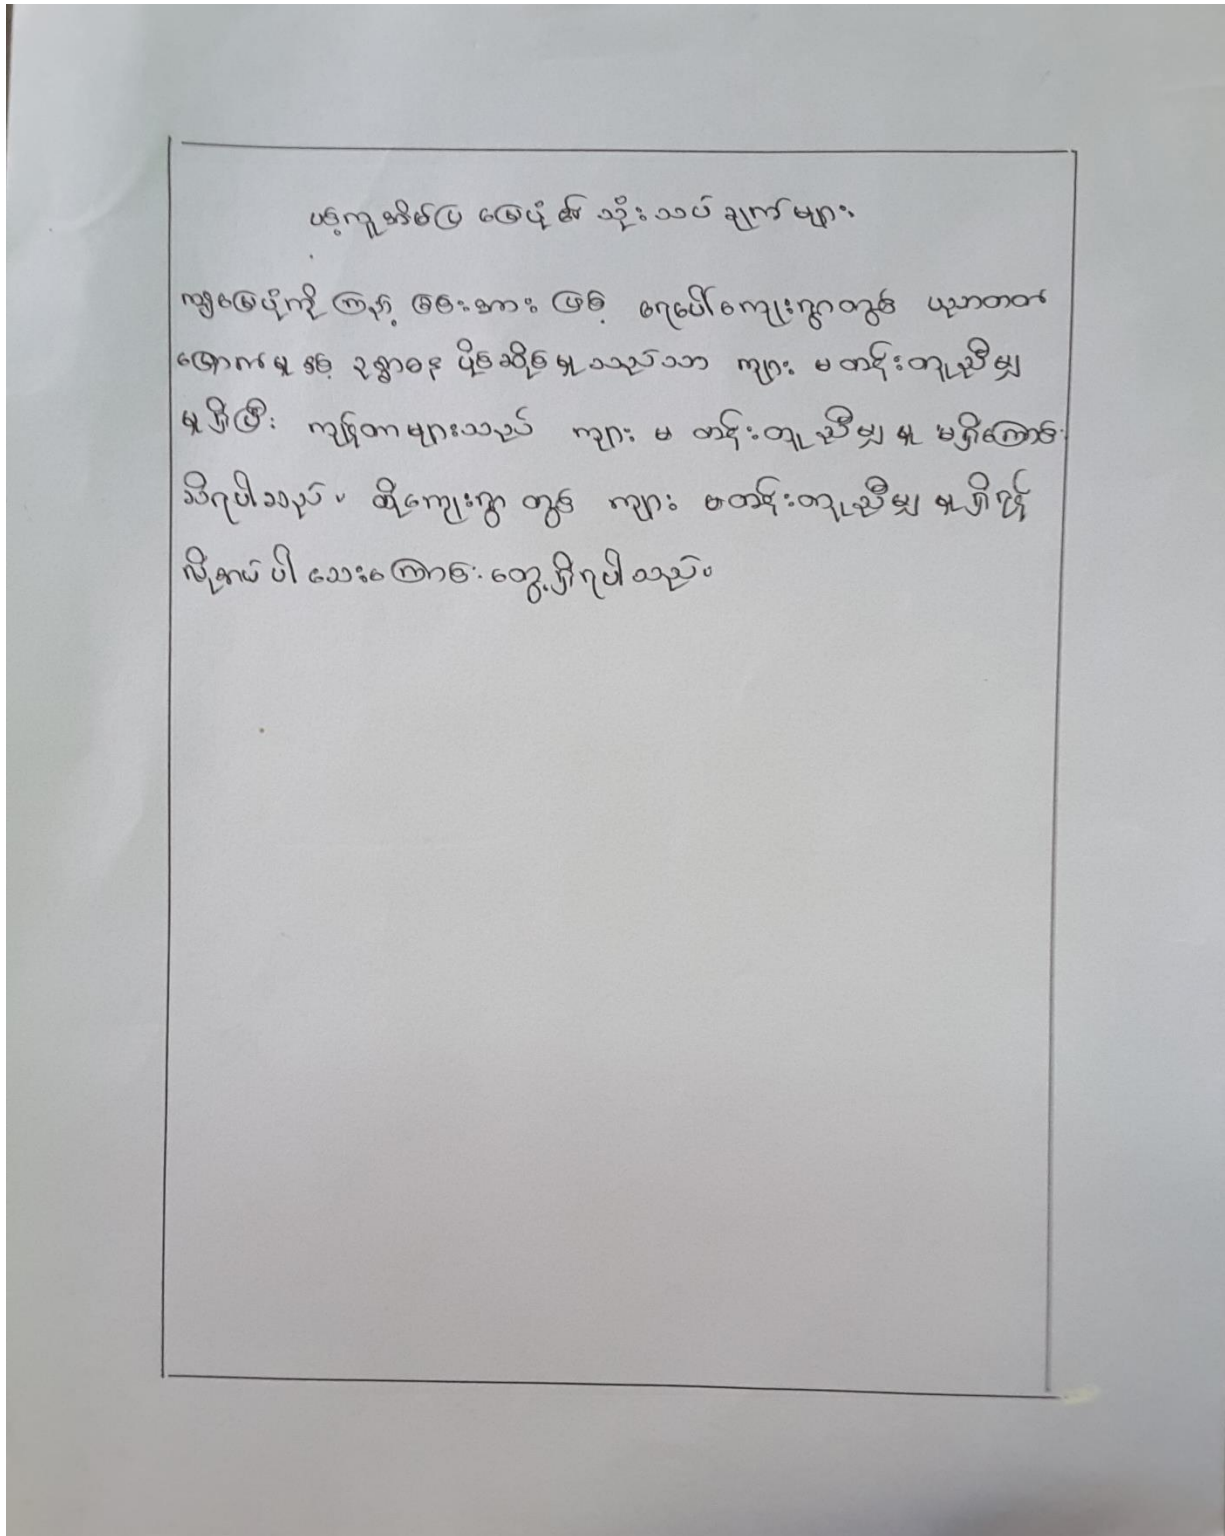 ပင့်ကူအိမ်ပြ မြေပုံ ၏ သုံးသပ် ချက်များ
ကျမြေပုံကို ကြည့် ခြင်းအား ဖြင့် ရေပေါ်ကျေးရွာတွင် ပညာတတ်
မြောက်မှု နှင့် ဥစ္စာဓန ပိုင်ဆိုင်မှုသည်သာ ကျား မတန်းတူညီမျှ
မှုရှိပြီး ကျန်တာများသည် ကျား မ တန်းတူညီမျှ မှု မရှိကြောင်း
သိရပါသည်။ ထိုကျေးရွာ တွင် ကျား မတန်းတူညီမျှ မှုရှိရန်
လိုအပ် ပါ သေးကြောင်း တွေ့ရှိရပါသည်။